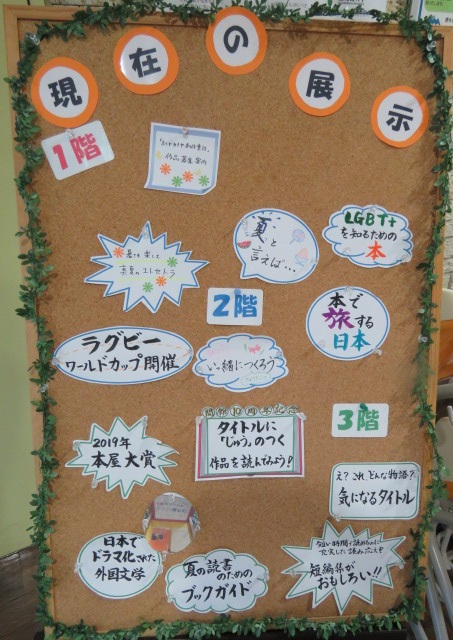 現在の展示
1階
作品募集案内
夏と
言えば…
LGBT+
を知るための
本
2階
本で
旅する
日本
ラグビー
ワールドカップ開催
いっ緒につくろう
3階
開館10周年記念
タイトルに
「じゅう」のつく
作品を読んでみよう!
2019年
本屋大賞
え?これ、どんな物語?
気になるタイトル
日本で
ドラマ化された
外国文学
夏の読書
のための
ブックガイド
短い時間で読めるのに
充実した読みごたえ!
短編集が
おもしろい!!